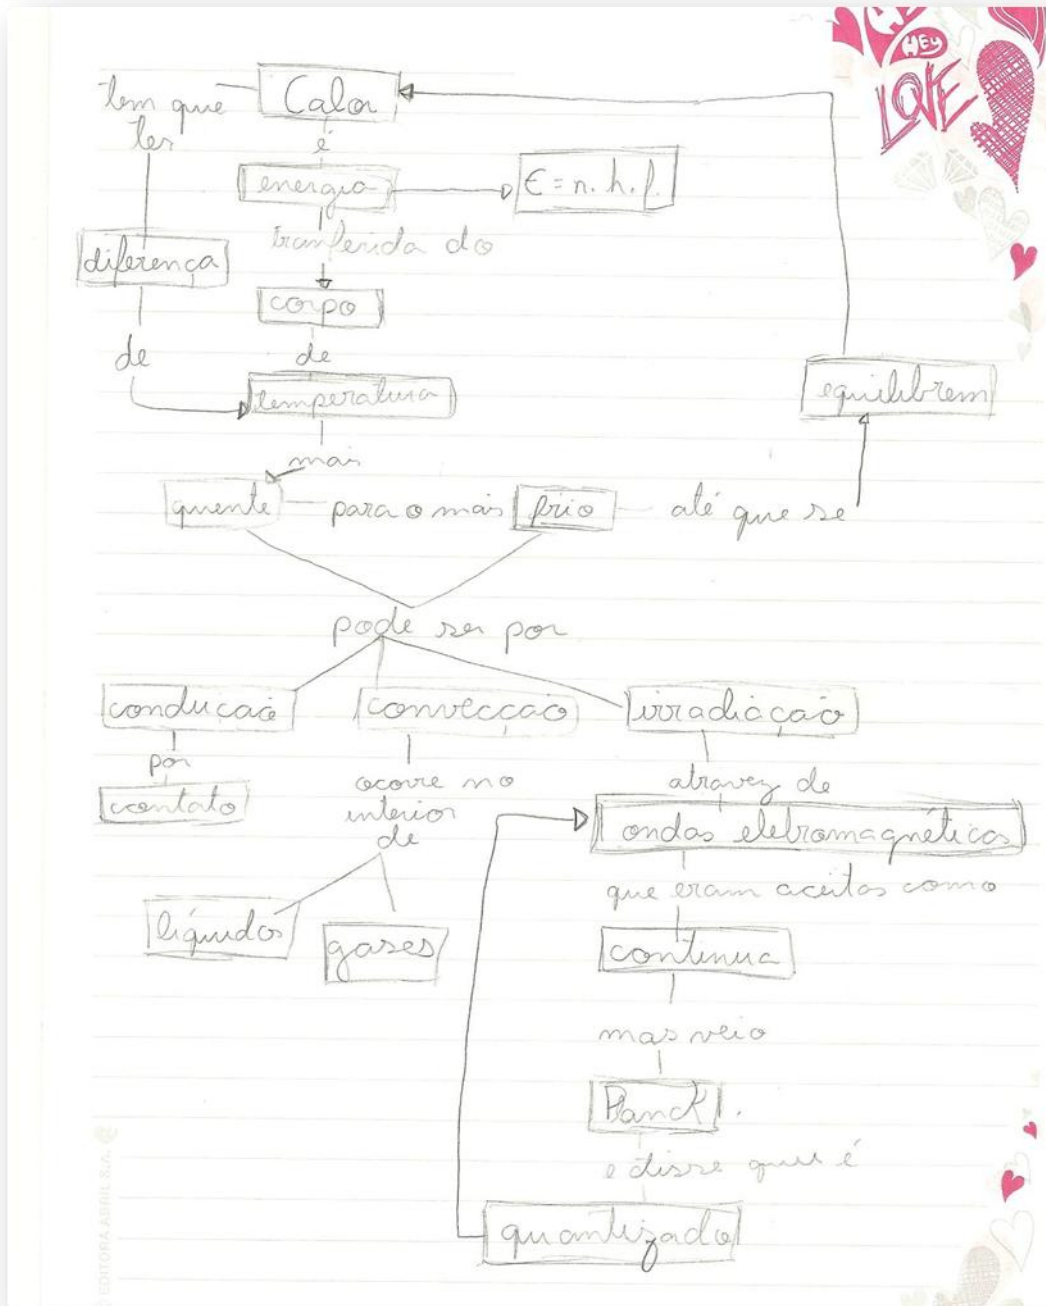 HEY
LOVE
tem que
ter
Calor
é
energia
E = n. h. f.
tranferida do
diferença
corpo
de
de
temperatura
equilibrem
mais
quente para o mais frio até que se
pode ser por
conducão convecção irradiação
por
contato
ocorre no
interior
de
atravez de
ondas eletromagnéticas
que eram aceitas como
líquidos
gases
continua
mas veio
Planck.
e disse que é
quantizado
EDITORA ABRIL S.A.